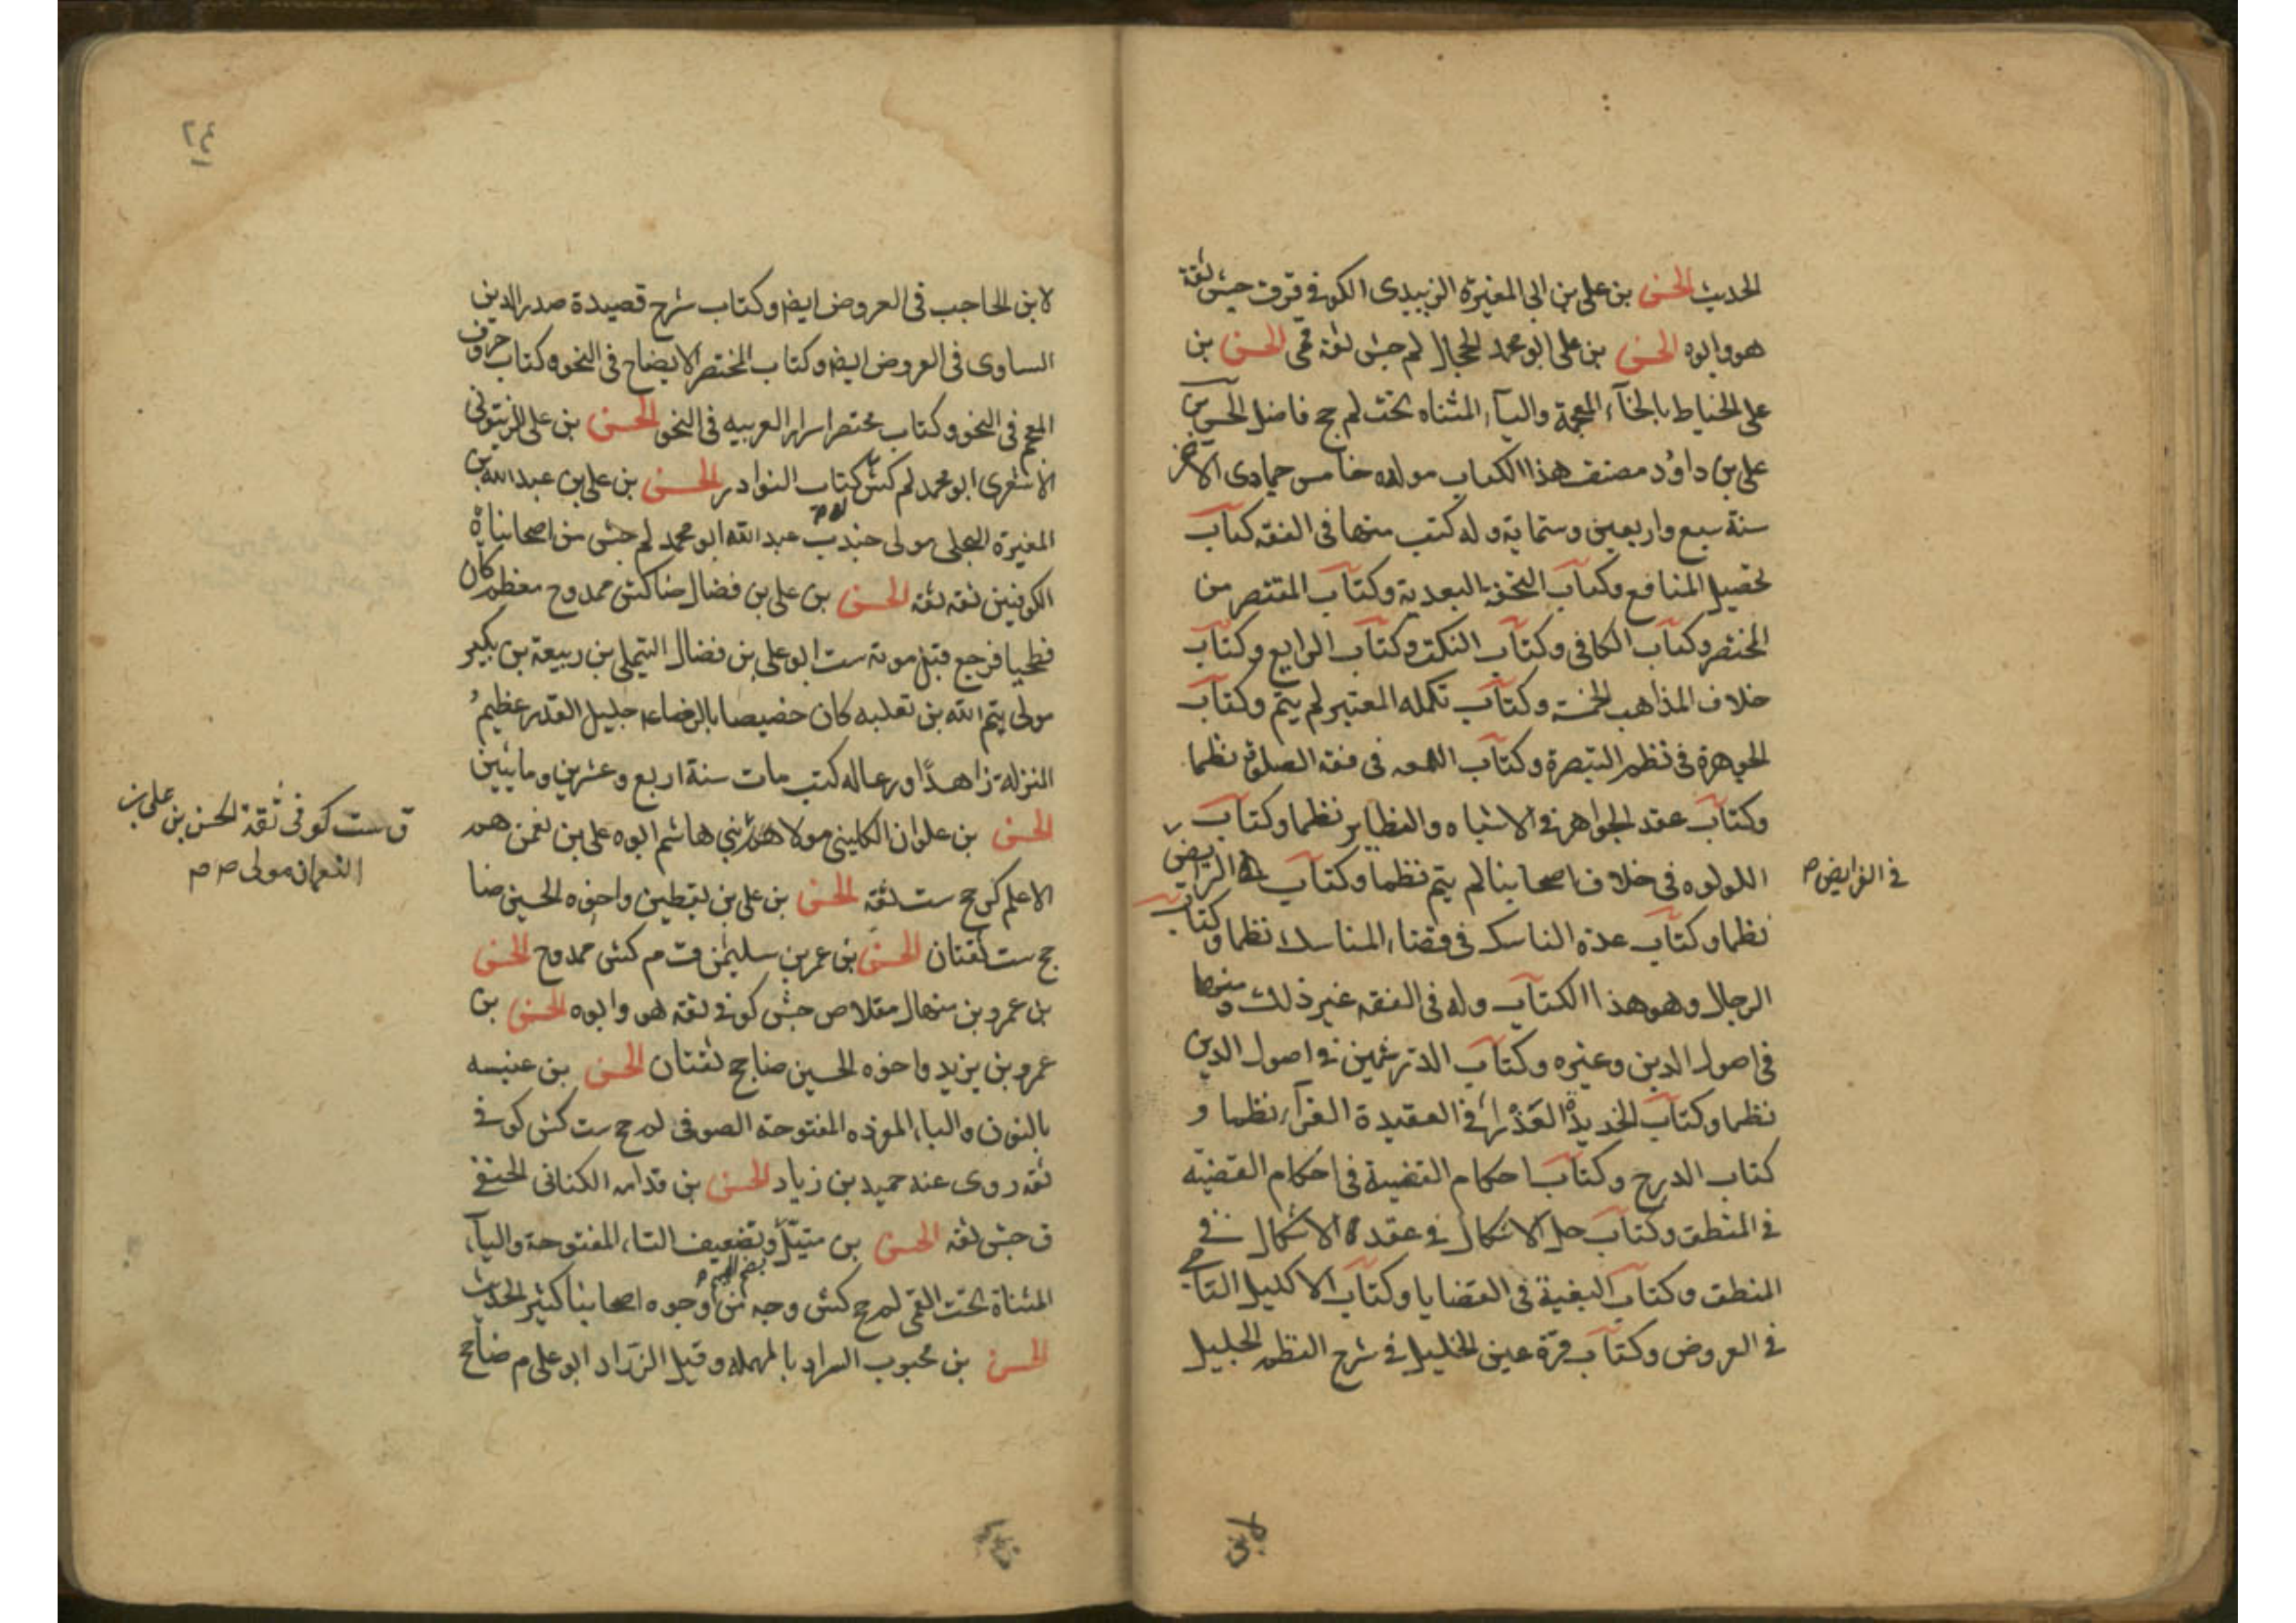 الحديث الحسن بن على بن ابى المغيرة الزبيدى الكوفى ق ق جش ثقة
هو وابوه الحسن بن على ابو محمد الحجال لم جش ثقة قمى الحسن بن
على الخياط بالخآء المعجمة واليآء المثناه تحت لم جج فاضل الحسن بن
على بن داود مصنف هذا الكتاب مولده خامس جمادى الاخر
سنة سبع واربعين وستماية وله كتب منها فى الفقه كتاب
تحصيل المنافع وكتاب التحفة السعدية وكتاب المقتصر من
المختصر وكتاب الكافى وكتاب النكت وكتاب الرايع وكتاب
خلاف المذاهب الخمسة وكتاب تكمله المعتبر لم يتم وكتاب
الجوهرة فى نظم التبصرة وكتاب اللمعه فى فقه الصلوة نظما
وكتاب عقد الجواهر فى الاشباه والنظاير نظما وكتاب
اللولوه فى خلاف اصحابنا لم يتم نظما وكتاب الرايض
فى الفرايض م
نظما وكتاب عدة الناسك فى قضاء المناسك نظما وكتاب
الرجال وهو هذا الكتاب وله فى الفقه غير ذلك ومنها
فى اصول الدين وغيره وكتاب الدر الثمين فى اصول الدين
نظما وكتاب الخريدة العذراء فى العقيدة الغراء نظما و
كتاب الدرج وكتاب احكام القضية فى احكام القضيه
فى المنطق وكتاب حل الاشكال فى عقد الاشكال فى
المنطق وكتاب البغية فى القضايا وكتاب الاكليل التاجى
فى العروض وكتاب قرة عين الخليل فى شرح النظم الجليل
لابن
٢٤
لابن الحاجب فى العروض ايضا وكتاب شرح قصيدة صدر الدين
الساوى فى العروض ايضا وكتاب المختصر الايضاح فى النحو وكتاب حروف
المعجم فى النحو وكتاب مختصر اسرار العربيه فى النحو الحسن بن على الزيتونى
الاشعرى ابو محمد لم كش له كتاب النوادر الحسن بن على بن عبد الله بن
المغيرة البجلى مولى جندب بن عبد الله ابو محمد لم جش من اصحابنا
الكوفيين ثقه ثقه الحسن بن على بن فضال ضا كش ممدوح معظم كان
فطحيا فرجع قبل موته ست ابو على بن فضال التيملى بن ربيعة بن بكير
مولى تيم الله بن ثعلبه كان خصيصا بالرضاء جليل القدر عظيم
المنزلة زاهدًا ورعا له كتب مات سنة اربع وعشرين ومايتين
الحسن بن علوان الكلينى مولاهم بنى هاشم ابوه على بن نعمن هو
ق ست كوفى ثقة الحسن بن على بن
النعمان مولى م م
الاعلم كر جج ست ثقه الحسن بن على بن يقطين واخوه الحسين ضا
جج ست ثقتان الحسن بن عمر بن سليمن ق م كش ممدوح الحسن
بن عمرو بن منهال مقلاص جش كوفى ثقه هو وابوه الحسن بن
عمرو بن يزيد واخوه الحسين ضا جج ثقتان الحسن بن عنبسه
بالنون والباء الموحده المفتوحة الصوفى لم جج ست كش كوفى
ثقه روى عنه حميد بن زياد الحسن بن قدامه الكنانى الحنفى
ق جش ثقه الحسن بن متيل وتضعيف التاء المفتوحة واليآء
بضم الميم م
المثناة تحت القمى لم جج كش وجه من وجوه اصحابنا كثير الحديث
الحسن بن محبوب السراد بالمهمله وقيل الزراد ابو على م ضا جج